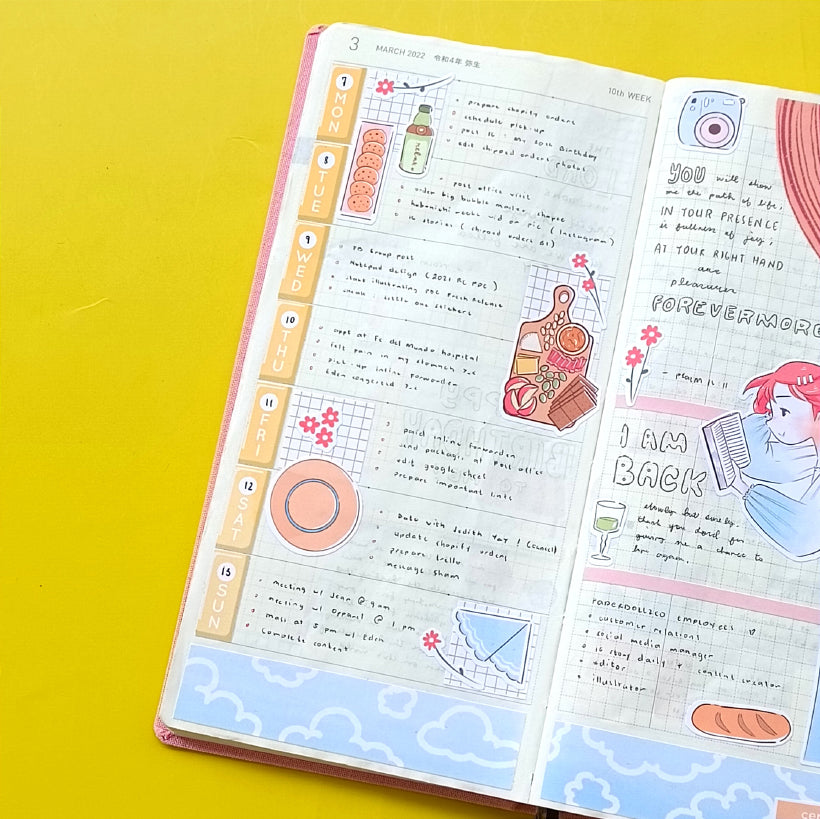 3 MARCH 2022 令和4年 弥生
10th WEEK
7 MON
prepare shopify orders
schedule pick-up
post IG : my 30th Birthday
edit shipped orders photos
8 TUE
post office visit
order big bubble mailer, shopee
hobonichi weeks wid on pic ( Instagram )
IG stories ( shipped orders
9 WED
FB Group post
Notepad design ( 2021
start illustrating
little one stickers
10 THU
appt at Fe del Mundo hospital
felt pain in my stomach
pick up inline forwarder
Eden
11 FRI
paid inline forwarder
send package at post office
edit google sheet
prepare important links
12 SAT
Date with Judith Yay ! (Cancel)
update shopify orders
prepare trello
message Sham
13 SUN
meeting w/ Jean @ 9am
meeting w/ Apparel @ 1 pm
mass at 5 pm w/ Eden
Complete content
YOU will show
me the path of life;
IN YOUR PRESENCE
is fullness of joy;
AT YOUR RIGHT HAND
are
pleasures
FOREVERMORE
- psalm 16:11
I AM
BACK
slowly but surely.
thank you Lord for
giving me a chance to
live again.
PAPERDOLLZCO EMPLOYEES
customer relations
social media manager
IG story daily + content creator
editor
illustrator